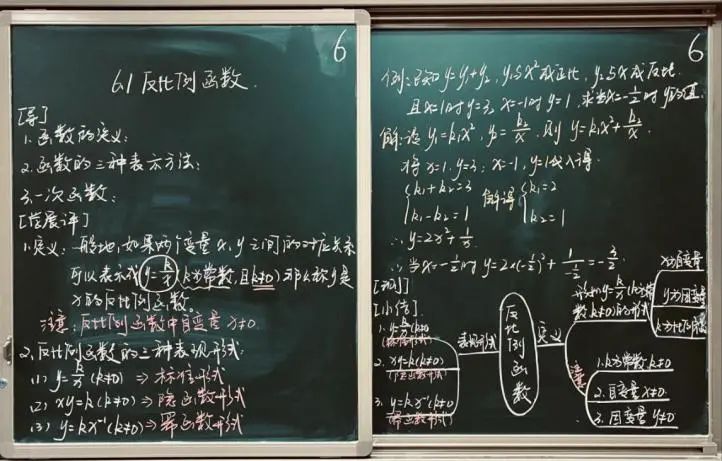 6
6.1 反比例函数
[导]
1.函数的定义:
2.函数的三种表示方法:
3.一次函数:
[学展评]
1.定义:一般地,如果两个变量x,y之间的对应关系
可以表示成y=k/x(k为常数,且k≠0)那么称y是
x的反比例函数。
注意:反比例函数中自变量x≠0
2.反比例函数的三种表现形式:
(1) y=k/x(k≠0) ⇒ 标准形式
(2) xy=k(k≠0) ⇒ 隐函数形式
(3) y=kx⁻¹(k≠0) ⇒ 幂函数形式
6
例:已知y=y₁+y₂, y₁与x²成正比, y₂与x成反比
且x=1时y=3, x=-1时y=1,求当x=-1/2时y的值
解:设y₁=k₁x², y₂=k₂/x,则y=k₁x²+k₂/x.
将x=1,y=3;x=-1,y=1代入得
{k₁+k₂=3 解得 {k₁=2
k₁-k₂=1 k₂=1
∴y=2x²+1/x
∴当x=-1/2时 y=2×(-1/2)²+1/-1/2=-3/2
[测]
[小结]
1. y=k/x(k≠0)
(标准形式)
2. xy=k(k≠0)
(隐函数形式)
3. y=kx⁻¹(k≠0)
(幂函数形式)
表现形式
反比例函数
定义
形如y=k/x(k为常
数k≠0)的形式
x为自变量
y为因变量
k为比例系数
注意
1.k为常数k≠0
2.自变量x≠0
3.因变量y≠0